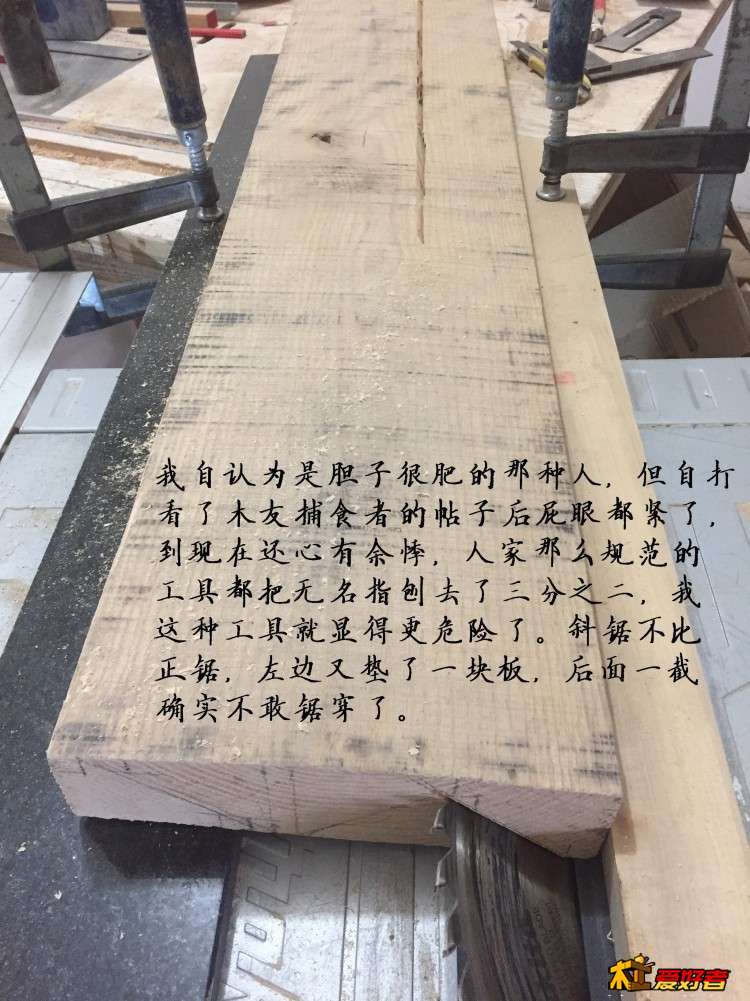 我自认为是胆子很肥的那种人，但自打
看了木友捕食者的帖子后屁眼都紧了，
到现在还心有余悸，人家那么规范的
工具都把无名指刨去了三分之二，我
这种工具就显得更危险了。斜锯不比
正锯，左边又垫了一块板，后面一截
确实不敢锯穿了。
木工爱好者